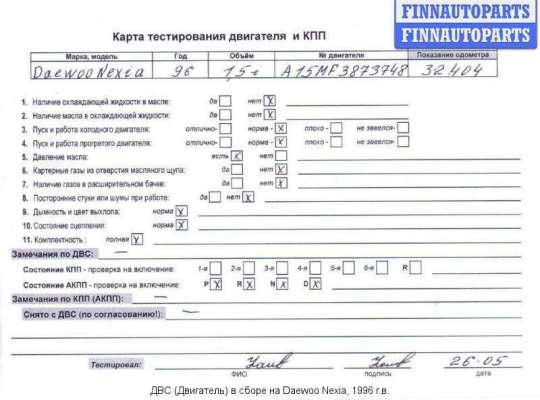 FINNAUTOPARTS
FINNAUTOPARTS
Карта тестирования двигателя и КПП
Марка, модель Год Объём № двигателя Показание одометра
Daewoo Nexia 96 1,5 A15MF3873748 32404
1. Наличие охлаждающей жидкости в масле: да нет X
2. Наличие масла в охлаждающей жидкости: да нет X
3. Пуск и работа холодного двигателя: отлично- норма - X плохо - не завелся-
4. Пуск и работа прогретого двигателя: отлично- норма - X плохо - не завелся-
5. Давление масла: есть X нет
6. Картерные газы из отверстия масляного щупа: да нет X
7. Наличие газов в расширительном бачке: да нет X
8. Посторонние стуки или шумы при работе: да нет X
9. Дымность и цвет выхлопа: норма X
10. Состояние сцепления: норма X
11. Комплектность : полная X
Замечания по ДВС: —
Состояние КПП - проверка на включение: 1-я 2-я 3-я 4-я 5-я 6-я R
Состояние АКПП - проверка на включение: P X R X N X D X
Замечания по КПП (АКПП): —
Снято с ДВС (по согласованию!): —
Тестировал: 26-05
ФИО подпись дата
ДВС (Двигатель) в сборе на Daewoo Nexia, 1996 г.в.